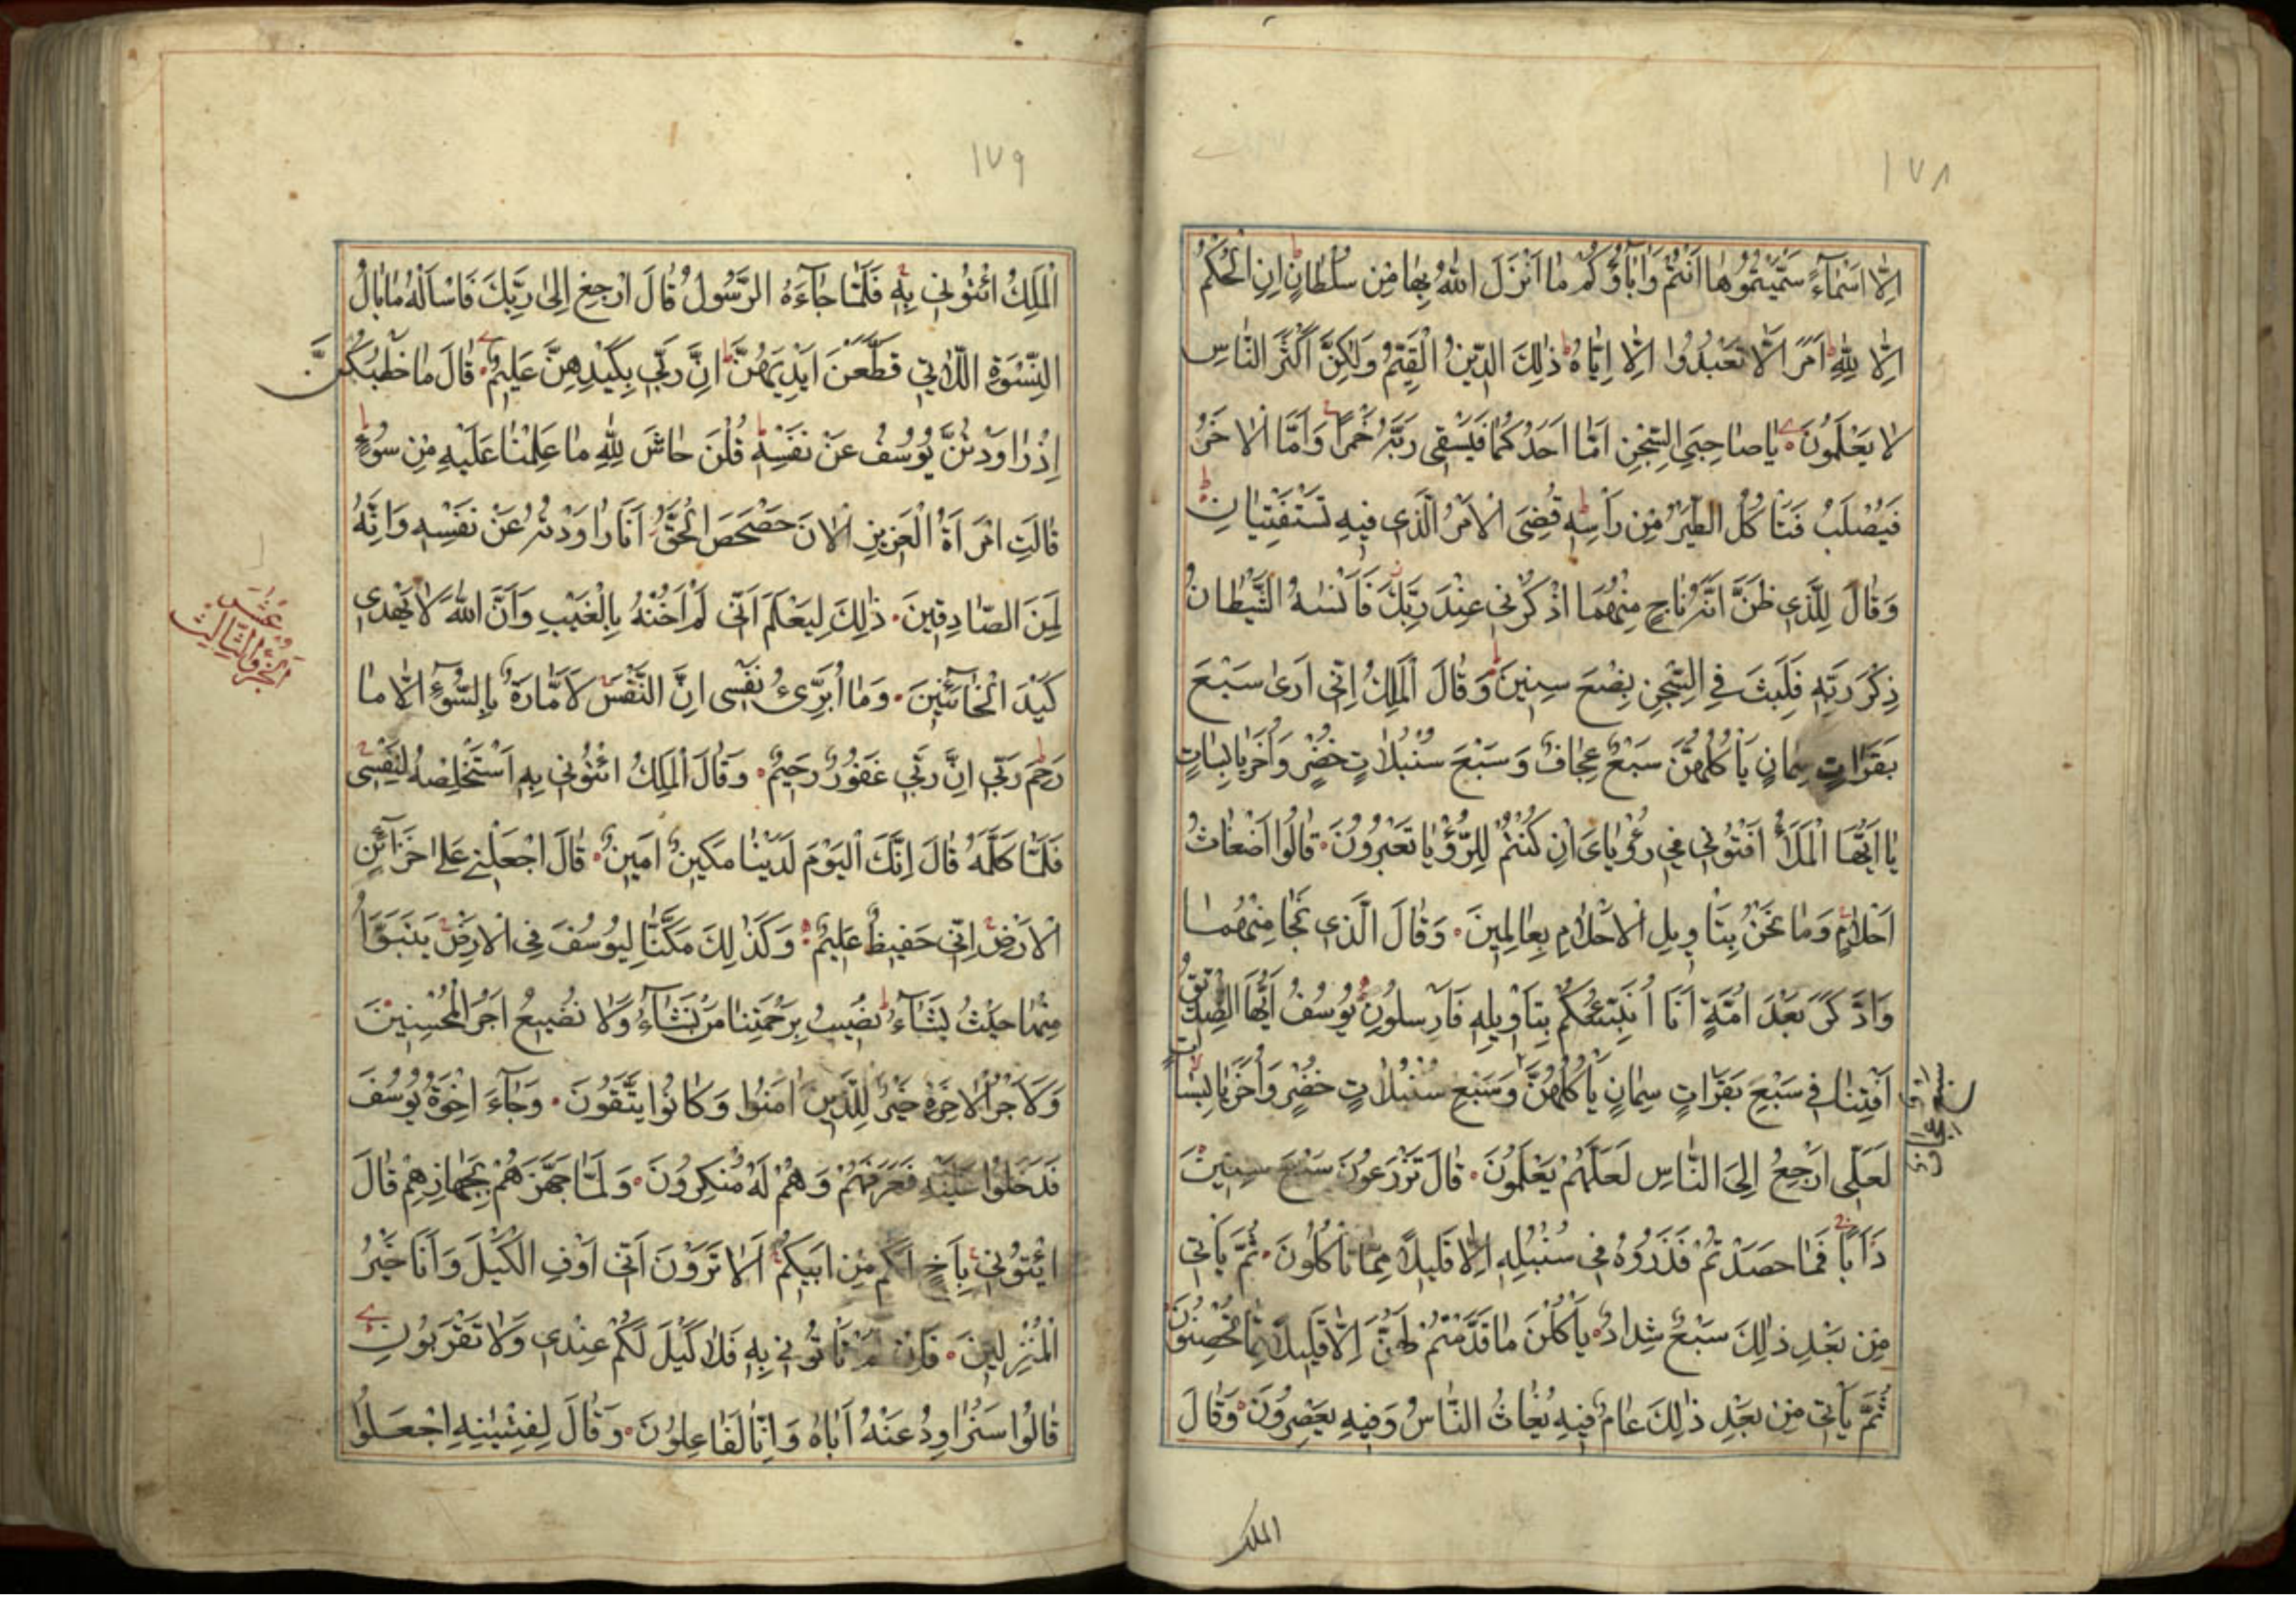 ١٧٨
اِلَّا اَسْمَاۤءً سَمَّيْتُمُوهَا اَنْتُمْ وَاٰبَاۤؤُكُمْ مَا اَنْزَلَ اللهُ بِهَا مِنْ سُلْطَانٍ اِنِ الْحُكْمُ
اِلَّا لِلّٰهِ اَمَرَ اَلَّا تَعْبُدُوا اِلَّا اِيَّاهُ ذٰلِكَ الدِّينُ الْقَيِّمُ وَلٰكِنَّ اَكْثَرَ النَّاسِ
لَا يَعْلَمُونَ يَاصَاحِبَيِ السِّجْنِ اَمَّا اَحَدُكُمَا فَيَسْقِي رَبَّهُ خَمْرًا وَاَمَّا الْاٰخَرُ
فَيُصْلَبُ فَتَأْكُلُ الطَّيْرُ مِنْ رَأْسِهِ قُضِيَ الْاَمْرُ الَّذِي فِيهِ تَسْتَفْتِيَانِ
وَقَالَ لِلَّذِي ظَنَّ اَنَّهُ نَاجٍ مِنْهُمَا اذْكُرْنِي عِنْدَ رَبِّكَ فَاَنْسٰيهُ الشَّيْطَانُ
ذِكْرَ رَبِّهِ فَلَبِثَ فِي السِّجْنِ بِضْعَ سِنِينَ وَقَالَ الْمَلِكُ اِنِّي اَرٰى سَبْعَ
بَقَرَاتٍ سِمَانٍ يَأْكُلُهُنَّ سَبْعٌ عِجَافٌ وَسَبْعَ سُنْبُلَاتٍ خُضْرٍ وَاُخَرَ يَابِسَاتٍ
يَا اَيُّهَا الْمَلَأُ اَفْتُونِي فِي رُءْيَايَ اِنْ كُنْتُمْ لِلرُّؤْيَا تَعْبُرُونَ قَالُوا اَضْغَاثُ
اَحْلَامٍ وَمَا نَحْنُ بِتَأْوِيلِ الْاَحْلَامِ بِعَالِمِينَ وَقَالَ الَّذِي نَجَا مِنْهُمَا
وَادَّكَرَ بَعْدَ اُمَّةٍ اَنَا اُنَبِّئُكُمْ بِتَأْوِيلِهِ فَاَرْسِلُونِ يُوسُفُ اَيُّهَا الصِّدِّيقُ
اَفْتِنَا فِي سَبْعِ بَقَرَاتٍ سِمَانٍ يَأْكُلُهُنَّ وَسَبْعِ سُنْبُلَاتٍ خُضْرٍ وَاُخَرَ يَابِسَاتٍ
سبع عجاف
لَعَلِّي اَرْجِعُ اِلَى النَّاسِ لَعَلَّهُمْ يَعْلَمُونَ قَالَ تَزْرَعُونَ سَبْعَ سِنِينَ
دَاَبًا فَمَا حَصَدْتُمْ فَذَرُوهُ فِي سُنْبُلِهِ اِلَّا قَلِيلًا مِمَّا تَأْكُلُونَ ثُمَّ يَأْتِي
مِنْ بَعْدِ ذٰلِكَ سَبْعٌ شِدَادٌ يَأْكُلْنَ مَا قَدَّمْتُمْ لَهُنَّ اِلَّا قَلِيلًا مِمَّا تُحْصِنُونَ
ثُمَّ يَأْتِي مِنْ بَعْدِ ذٰلِكَ عَامٌ فِيهِ يُغَاثُ النَّاسُ وَفِيهِ يَعْصِرُونَ وَقَالَ
الملك
١٧٩
الْمَلِكُ ائْتُونِي بِهِ فَلَمَّا جَاۤءَهُ الرَّسُولُ قَالَ ارْجِعْ اِلٰى رَبِّكَ فَاسْاَلْهُ مَا بَالُ
النِّسْوَةِ اللَّاتِي قَطَّعْنَ اَيْدِيَهُنَّ اِنَّ رَبِّي بِكَيْدِهِنَّ عَلِيمٌ قَالَ مَا خَطْبُكُنَّ
اِذْ رَاوَدْتُنَّ يُوسُفَ عَنْ نَفْسِهِ قُلْنَ حَاشَ لِلّٰهِ مَا عَلِمْنَا عَلَيْهِ مِنْ سُوءٍ
قَالَتِ امْرَاَةُ الْعَزِيزِ الْاٰنَ حَصْحَصَ الْحَقُّ اَنَا رَاوَدْتُهُ عَنْ نَفْسِهِ وَاِنَّهُ
لَمِنَ الصَّادِقِينَ ذٰلِكَ لِيَعْلَمَ اَنِّي لَمْ اَخُنْهُ بِالْغَيْبِ وَاَنَّ اللهَ لَا يَهْدِي
عُشْر
الجزؤ الثالث
كَيْدَ الْخَاۤئِنِينَ وَمَا اُبَرِّئُ نَفْسِي اِنَّ النَّفْسَ لَاَمَّارَةٌ بِالسُّوۤءِ اِلَّا مَا
رَحِمَ رَبِّي اِنَّ رَبِّي غَفُورٌ رَحِيمٌ وَقَالَ الْمَلِكُ ائْتُونِي بِهِ اَسْتَخْلِصْهُ لِنَفْسِي
فَلَمَّا كَلَّمَهُ قَالَ اِنَّكَ الْيَوْمَ لَدَيْنَا مَكِينٌ اَمِينٌ قَالَ اجْعَلْنِي عَلٰى خَزَاۤئِنِ
الْاَرْضِ اِنِّي حَفِيظٌ عَلِيمٌ وَكَذٰلِكَ مَكَّنَّا لِيُوسُفَ فِي الْاَرْضِ يَتَبَوَّاُ
مِنْهَا حَيْثُ يَشَاۤءُ نُصِيبُ بِرَحْمَتِنَا مَنْ نَشَاۤءُ وَلَا نُضِيعُ اَجْرَ الْمُحْسِنِينَ
وَلَاَجْرُ الْاٰخِرَةِ خَيْرٌ لِلَّذِينَ اٰمَنُوا وَكَانُوا يَتَّقُونَ وَجَاۤءَ اِخْوَةُ يُوسُفَ
فَدَخَلُوا عَلَيْهِ فَعَرَفَهُمْ وَهُمْ لَهُ مُنْكِرُونَ وَلَمَّا جَهَّزَهُمْ بِجَهَازِهِمْ قَالَ
ايْتُونِي بِاَخٍ لَكُمْ مِنْ اَبِيكُمْ اَلَا تَرَوْنَ اَنِّي اُوفِ الْكَيْلَ وَاَنَا خَيْرُ
الْمُنْزِلِينَ فَاِنْ لَمْ تَأْتُونِي بِهِ فَلَا كَيْلَ لَكُمْ عِنْدِي وَلَا تَقْرَبُونِ
قَالُوا سَنُرَاوِدُ عَنْهُ اَبَاهُ وَاِنَّا لَفَاعِلُونَ وَقَالَ لِفِتْيٰنِهِ اجْعَلُوا